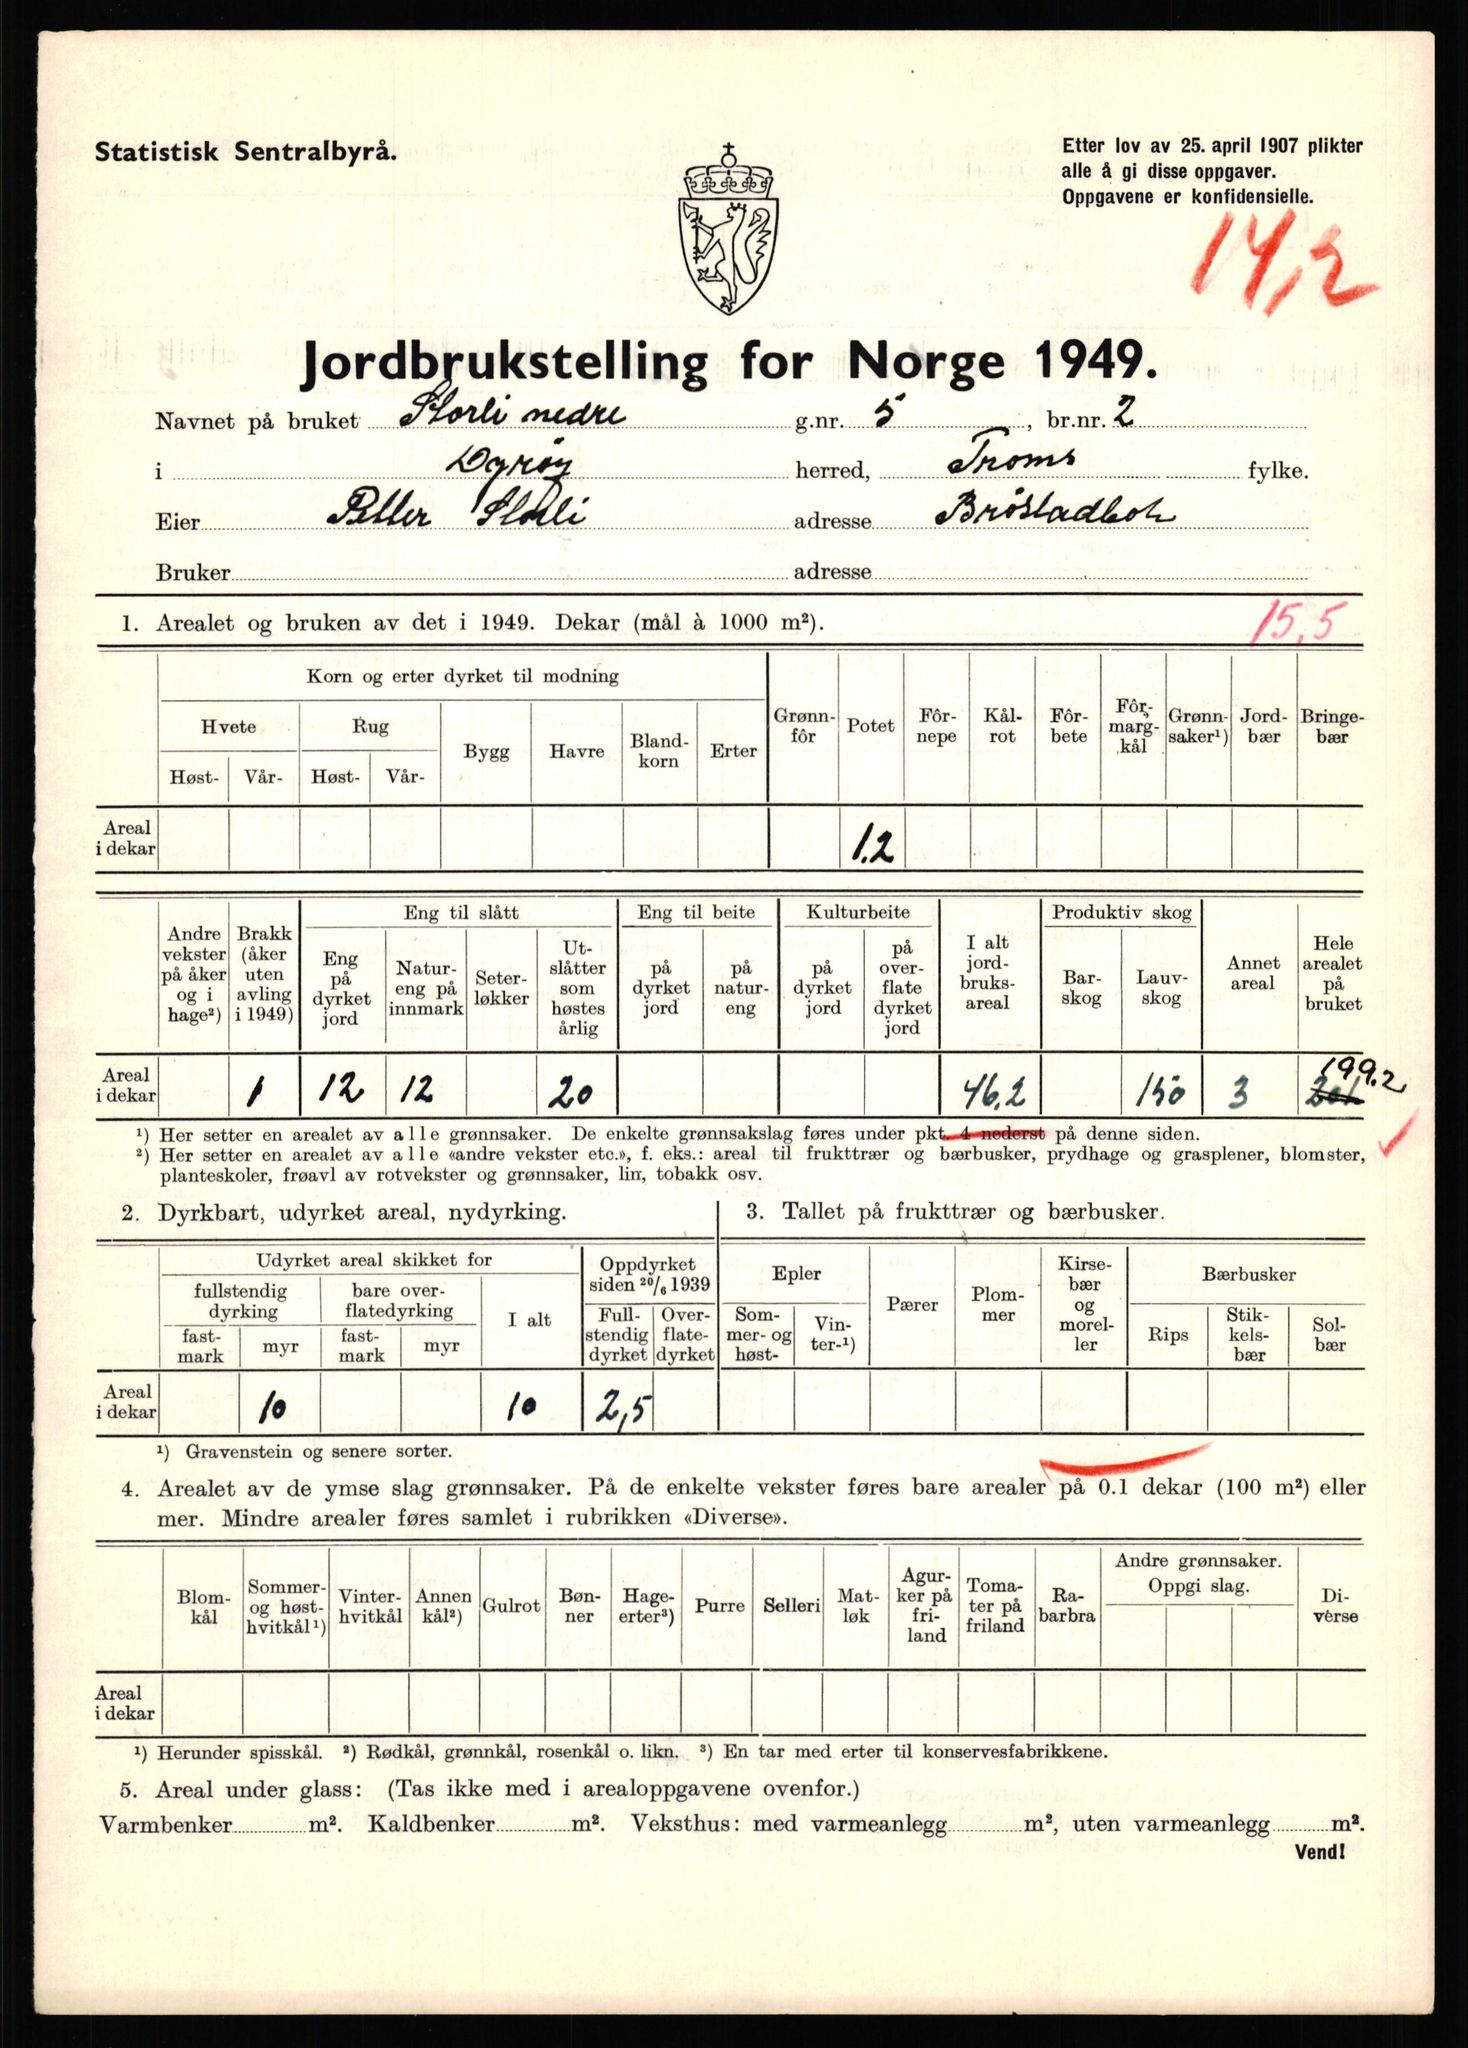 Statistisk Sentralbyrå.
Etter lov av 25. april 1907 plikter
alle å gi disse oppgaver.
Oppgavene er konfidensielle.
14,2
Jordbrukstelling for Norge 1949.
Navnet på bruket Storli nedre g.nr. 5, br.nr. 2
i Dyrøy herred, Troms fylke.
Eier Petter Storli adresse Brøstadbotn
Bruker adresse
1. Arealet og bruken av det i 1949. Dekar (mål à 1000 m²). 15,5
Korn og erter dyrket til modning
Hvete Rug Bygg Havre Bland-korn Erter Grønn-fôr Potet Fôr-nepe Kål-rot Fôr-bete Fôr-marg-kål Grønn-saker¹) Jord-bær Bringe-bær
Høst- Vår- Høst- Vår-
Areal i dekar 1.2
Andre vekster på åker og i hage²) Brakk (åker uten avling i 1949) Eng til slått Eng til beite Kulturbeite I alt jord-bruks-areal Produktiv skog Annet areal Hele arealet på bruket
Eng på dyrket jord Natur-eng på innmark Seter-løkker Ut-slåtter som høstes årlig på dyrket jord på natur-eng på dyrket jord på over-flate dyrket jord Bar-skog Lauv-skog
199.2
Areal i dekar 1 12 12 20 46,2 150 3
¹) Her setter en arealet av alle grønnsaker. De enkelte grønnsakslag føres under pkt. 4 nederst på denne siden.
²) Her setter en arealet av alle «andre vekster etc.», f. eks.: areal til frukttrær og bærbusker, prydhage og grasplener, blomster,
planteskoler, frøavl av rotvekster og grønnsaker, lin, tobakk osv.
2. Dyrkbart, udyrket areal, nydyrking.
Udyrket areal skikket for Oppdyrket siden 20/6 1939
fullstendig dyrking bare over-flatedyrking I alt Full-stendig dyrket Over-flate-dyrket
fast-mark myr fast-mark myr
Areal i dekar 10 10 2,5
¹) Gravenstein og senere sorter.
3. Tallet på frukttrær og bærbusker.
Epler Pærer Plom-mer Kirse-bær og morel-ler Bærbusker
Som-mer- og høst- Vin-ter-¹) Rips Stik-kels-bær Sol-bær
4. Arealet av de ymse slag grønnsaker. På de enkelte vekster føres bare arealer på 0.1 dekar (100 m²) eller
mer. Mindre arealer føres samlet i rubrikken «Diverse».
Blom-kål Sommer- og høst-hvitkål¹) Vinter-hvitkål Annen kål²) Gulrot Bøn-ner Hage-erter³) Purre Selleri Mat-løk Agur-ker på fri-land Toma-ter på friland Ra-barbra Andre grønnsaker. Oppgi slag. Di-verse
Areal i dekar
¹) Herunder spisskål. ²) Rødkål, grønnkål, rosenkål o. likn. ³) En tar med erter til konservesfabrikkene.
5. Areal under glass: (Tas ikke med i arealoppgavene ovenfor.)
Varmbenker m². Kaldbenker m². Veksthus: med varmeanlegg m², uten varmeanlegg m².
Vend!